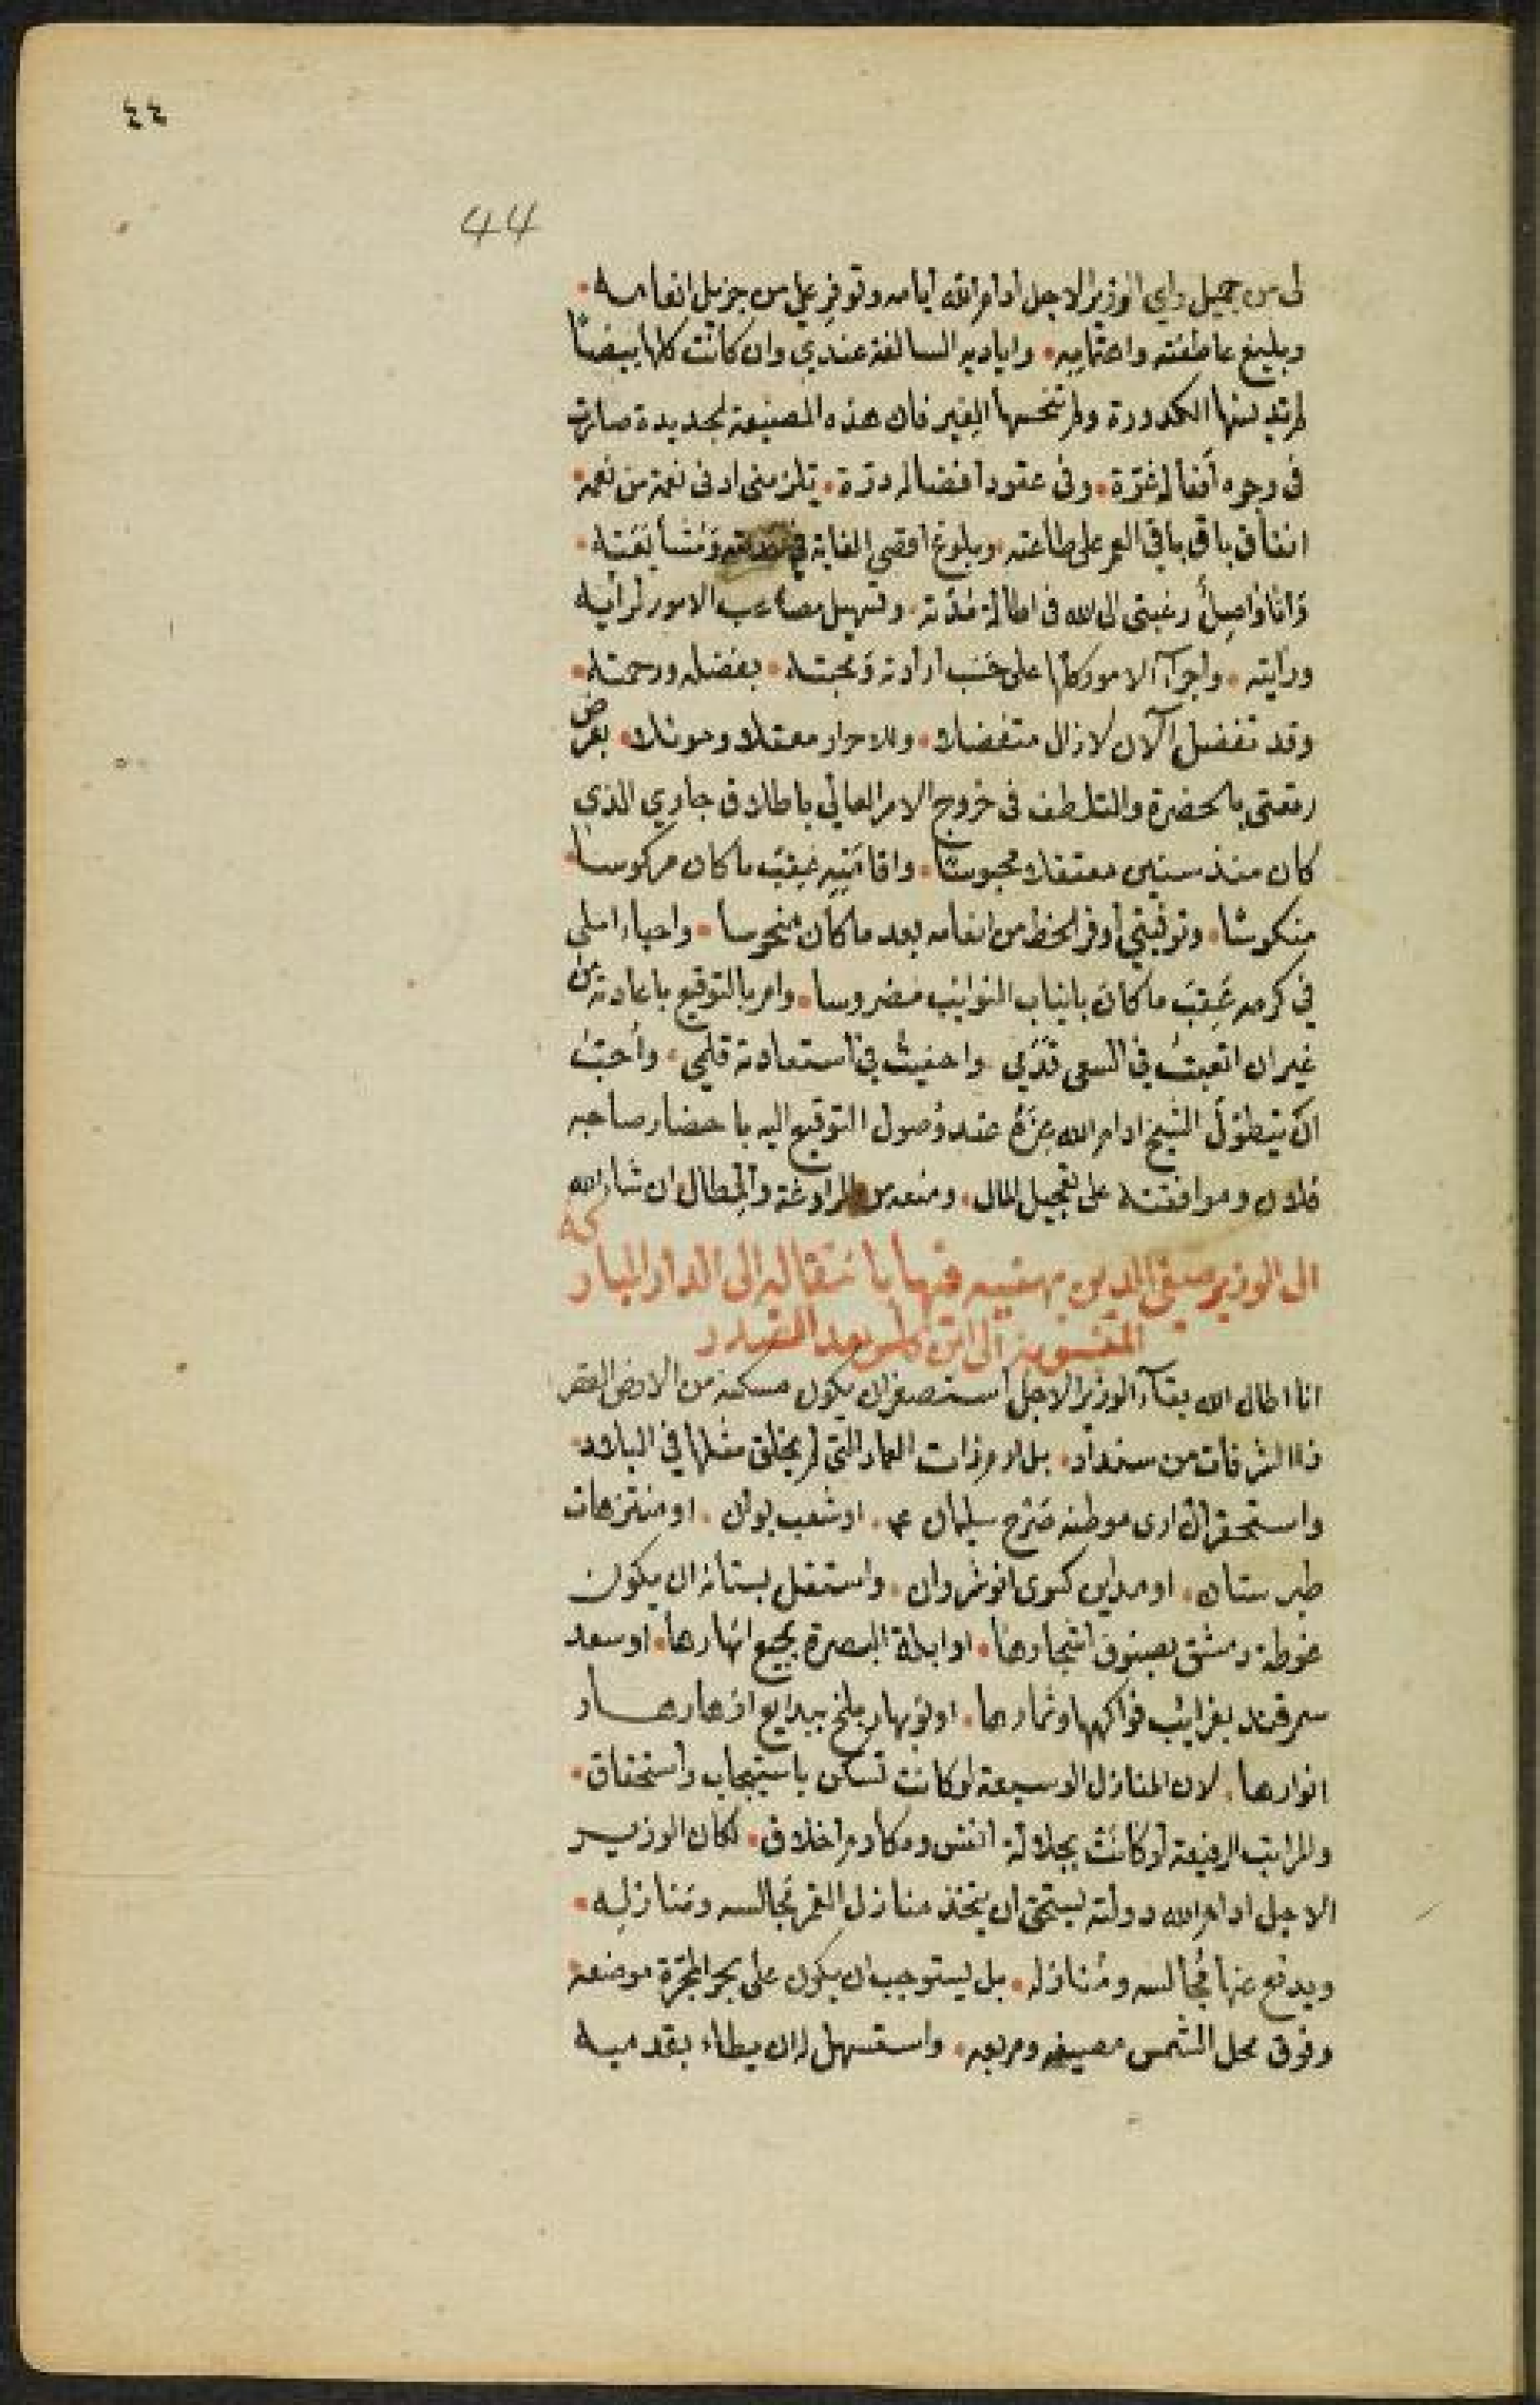 ٤٤
44
لى من جميل راي الوزير الاجل ادام الله أيامه وتوفر علي من جزيل انعامه
وبليغ عاطفته واهتمامه واياديه السالفة عندي وان كانت كلها بيضًا
لم تدنسها الكدورة ولم تنحسها الغير فان هذه الصنيعة الجديدة صارت
فى وجوه أفعاله غرّة وفى عقود افضاله درّة تلزمنى ادنى نعمة من نعمه
انفاق باقى العمر على طاعته وبلوغ اقصى الغاية في ومُشايعته
وَانا اواصِلُ رغبتى الى الله فى اطالة مُدّته وتسهيل مصاعب الامور لرأيه
ورايته واجراء الامور كلّها على حَسَب ارادته وَمحبته بفضله ورحمته
وقد تفضل الآن لا زال متفضلا وللاحرار معقلا وموئلا بعرض
رقعتى بالحضرة والتلطف فى خروج الامر العالي باطلاق جاري الذى
كان منذ سنين معتقلا محبوسًا واقامَتِه عقِيبَ ما كان مركوسًا
منكوسًا وتوفيتي أوفر الحظ من انعامه بعد ما كان منحوسا واحياء املى
في كرمه عَقِيبَ ما كان بانياب النوايب مضروسا وامر بالتوقيع باعادته من
غير ان اتعبتُ في السعى قَدَمي واحفيتُ في استعادته قلمى وأحبّ
ان يتطوّلَ الشيخ ادام الله عِزّهُ عند وُصول التوقيع اليه باحضار صاحبه
فلان وموافقته على تعجيل المال ومنعه من المراوغة والمطال ان شاء الله
الى الوزير صفى الدين يهنيه فيها بانتقاله الى الدار
المنسوبة الى ابن بعد
انا اطال الله بقآء الوزير الاجل استصغر ان يكون مسكنه من الارض القصر
ذا الشرفات من سنداد بل ارم ذات العماد التى لم يخلق مثلها في البلاد
واستحقر ان ارى موطنه صَرْح سليمان عم اوشعب بوان او منتزهات
طبرستان او مداين كسرى انوشروان واستقل بستانه ان يكون
غوطة دمشق بصنوف اشجارها او ابلة البصرة بجميع انهارها او سغد
سمرقند بغرايب فواكهها وثمارها او نوبهار بلخ ببدايع ازهارها و
انوارها لان المنازل الوسيعة لو كانت تسكن باستيجاب واستحقاق
والمراتب الرفيعة لو كانت بجلالة انفس ومكارم اخلاق لكان الوزير
الاجل ادام الله دولته يستحق ان يتخذ منازل القمر مَجالسه ومَنازلِه
ويدفع عنها مُجالسه ومُنازله بل يستوجب ان يكون على بحر المجرّة موضعه
وفوق محل الشمس مصيفه ومربعه واستسهل له ان يطاء بقدميه